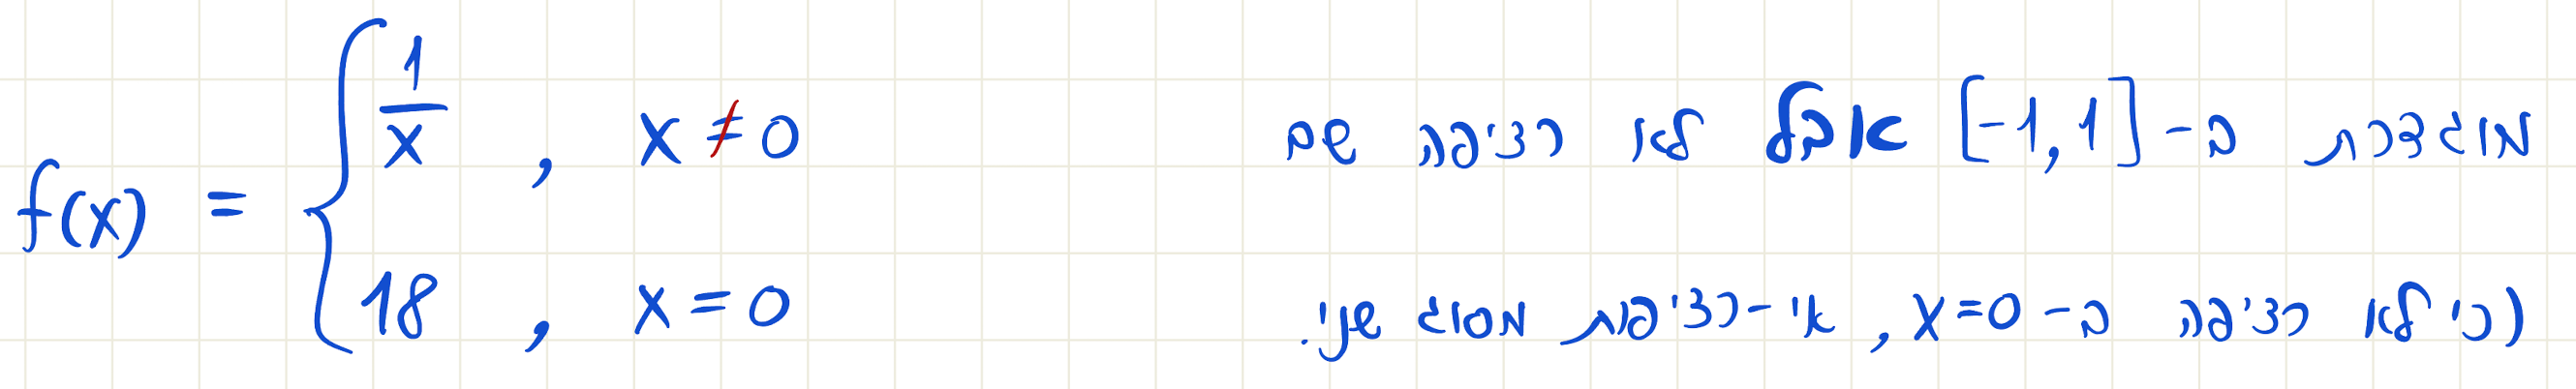 f(x) = { 1/x , x ≠ 0
18 , x = 0
מוגדרת ב- [-1,1] אבל לא רציפה שם
(כי לא רציפה ב- x=0, אי-רציפות מסוג שני.